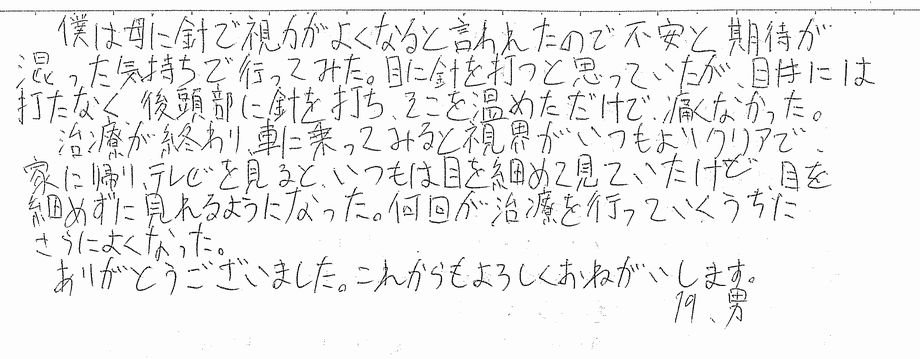 僕は母に針で視力がよくなると言われたので不安と期待が
混った気持ちで行ってみた。目に針を打つと思っていたが、目には
打たなく、後頭部に針を打ち、そこを温めただけで、痛くなかった。
治療が終わり、車に乗ってみると視界がいつもよりクリアで、
家に帰り、テレビを見ると、いつもは目を細めて見ていたけど、目を
細めずに見れるようになった。何回か治療を行っていくうちに
さらによくなった。
ありがとうございました。これからもよろしくおねがいします。
19、男